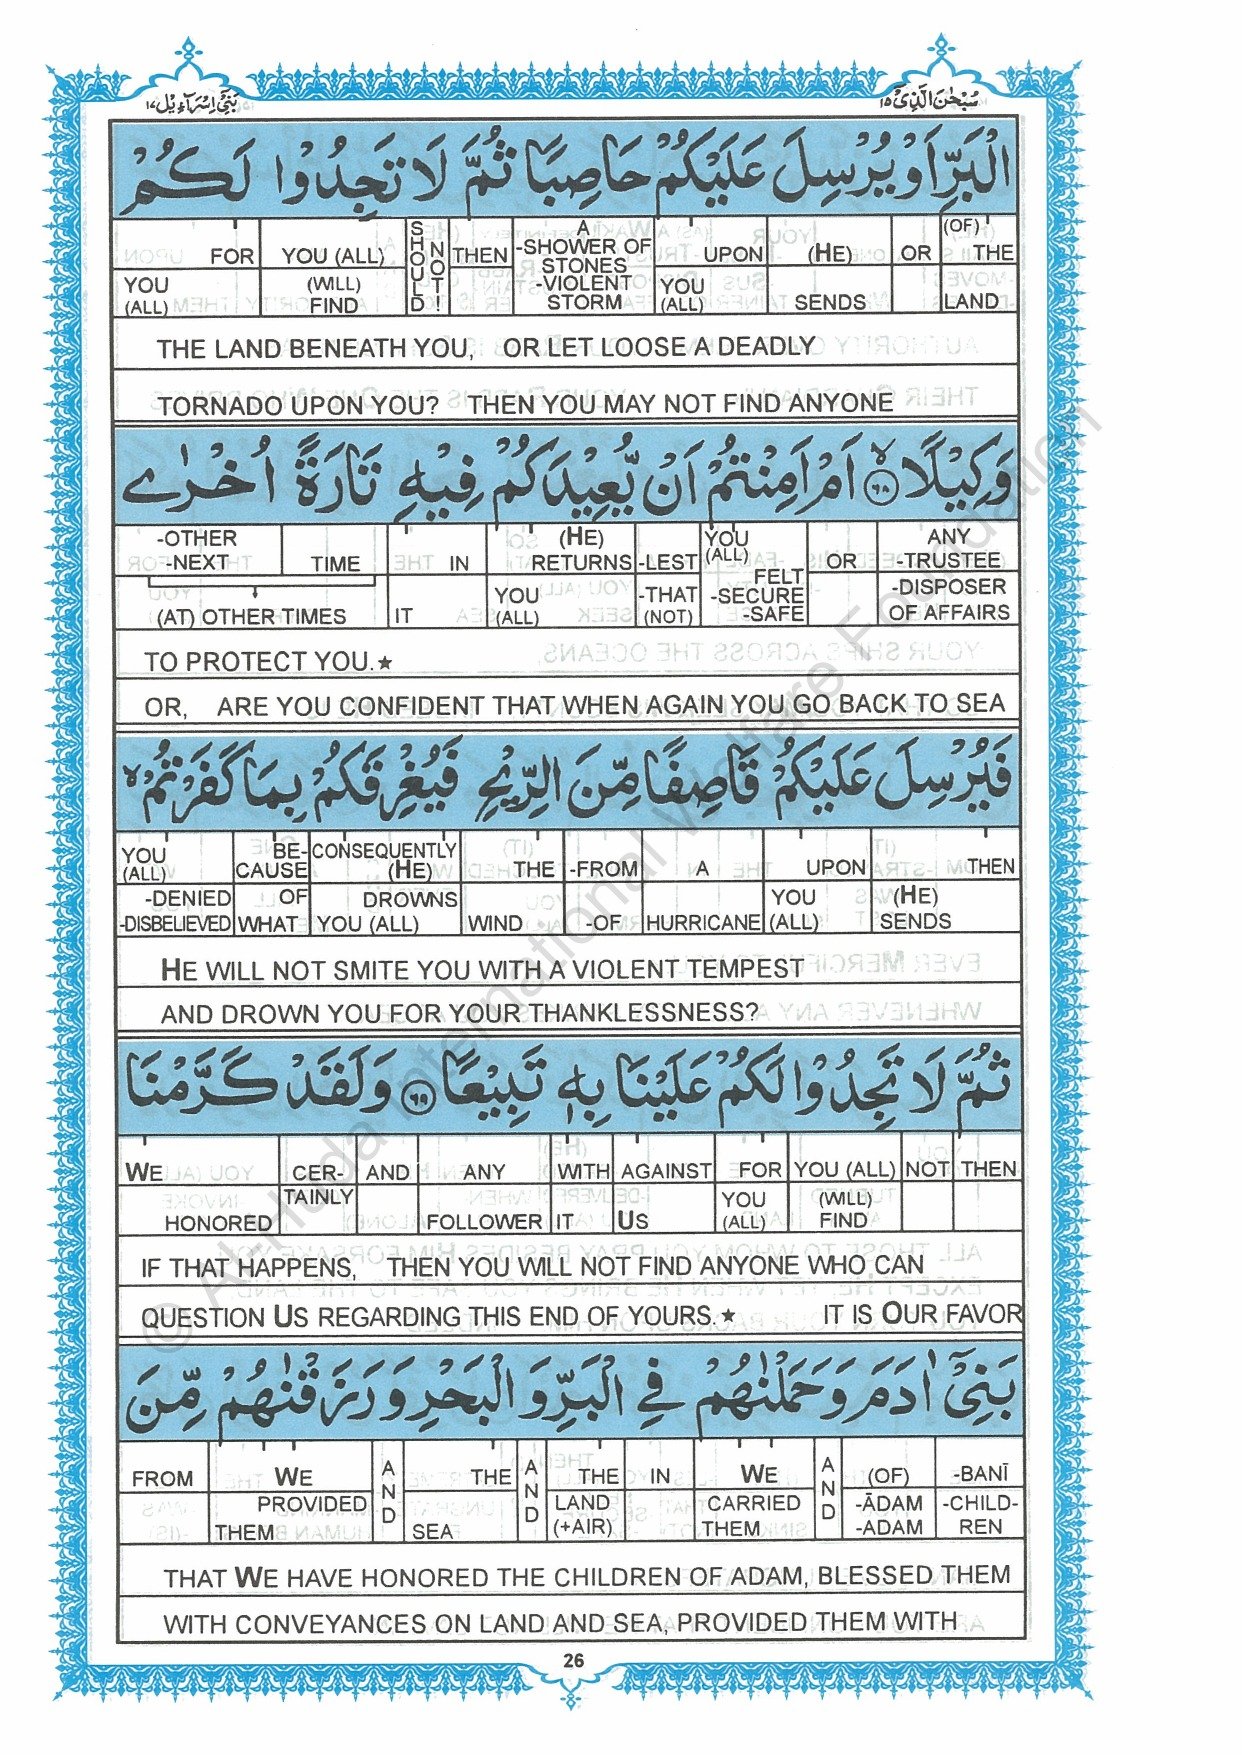 سُبْحٰنَ الَّذِيْۤ ١٥
بَنِيْۤ اِسْرَآءِيْل ١٧
الْبَرِّ اَوْ يُرْسِلَ عَلَيْكُمْ حَاصِبًا ثُمَّ لَا تَجِدُوْا لَكُمْ
FOR YOU (ALL) SHOULD NOT! THEN A -SHOWER OF STONES UPON (HE) OR (OF) THE
YOU (ALL) (WILL) FIND -VIOLENT STORM YOU (ALL) SENDS LAND
THE LAND BENEATH YOU, OR LET LOOSE A DEADLY
TORNADO UPON YOU? THEN YOU MAY NOT FIND ANYONE
وَكِيْلًا ۙ ٦٨ اَمْ اَمِنْتُمْ اَنْ يُّعِيْدَكُمْ فِيْهِ تَارَةً اُخْرٰى
-OTHER -NEXT TIME IN (HE) RETURNS -LEST YOU (ALL) OR ANY -TRUSTEE
(AT) OTHER TIMES IT YOU (ALL) -THAT (NOT) FELT -SECURE -SAFE -DISPOSER OF AFFAIRS
TO PROTECT YOU.★
OR, ARE YOU CONFIDENT THAT WHEN AGAIN YOU GO BACK TO SEA
فَيُرْسِلَ عَلَيْكُمْ قَاصِفًا مِّنَ الرِّيْحِ فَيُغْرِقَكُمْ بِمَا كَفَرْتُمْ ۙ
YOU (ALL) BE-CAUSE CONSEQUENTLY (HE) THE -FROM A UPON THEN
-DENIED -DISBELIEVED OF WHAT DROWNS YOU (ALL) WIND -OF HURRICANE YOU (ALL) (HE) SENDS
HE WILL NOT SMITE YOU WITH A VIOLENT TEMPEST
AND DROWN YOU FOR YOUR THANKLESSNESS?
ثُمَّ لَا تَجِدُوْا لَكُمْ عَلَيْنَا بِهٖ تَبِيْعًا ٦٩ وَلَقَدْ كَرَّمْنَا
WE CER-TAINLY AND ANY WITH AGAINST FOR YOU (ALL) NOT THEN
HONORED FOLLOWER IT US YOU (ALL) (WILL) FIND
IF THAT HAPPENS, THEN YOU WILL NOT FIND ANYONE WHO CAN
QUESTION US REGARDING THIS END OF YOURS.★ IT IS OUR FAVOR
بَنِيْۤ اٰدَمَ وَحَمَلْنٰهُمْ فِي الْبَرِّ وَ الْبَحْرِ وَرَزَقْنٰهُمْ مِّنَ
FROM WE AND THE AND THE IN WE AND (OF) -BANĪ
PROVIDED THEM SEA LAND (+AIR) CARRIED THEM -ĀDAM -ADAM -CHILD-REN
THAT WE HAVE HONORED THE CHILDREN OF ADAM, BLESSED THEM
WITH CONVEYANCES ON LAND AND SEA, PROVIDED THEM WITH
26
© Al-Huda International Welfare Foundation